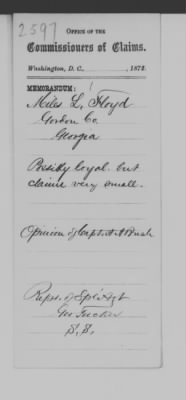 2597
OFFICE OF THE
Commissioners of Claims.
Washington, D. C., , 1872.
MEMORANDUM:
Miles L. Floyd
Gordon Co.
Georgia
Possibly loyal but
claim very small.
Opinion of Capt. A A Bush
Repr. of Spl. Agt
Geo Tucker